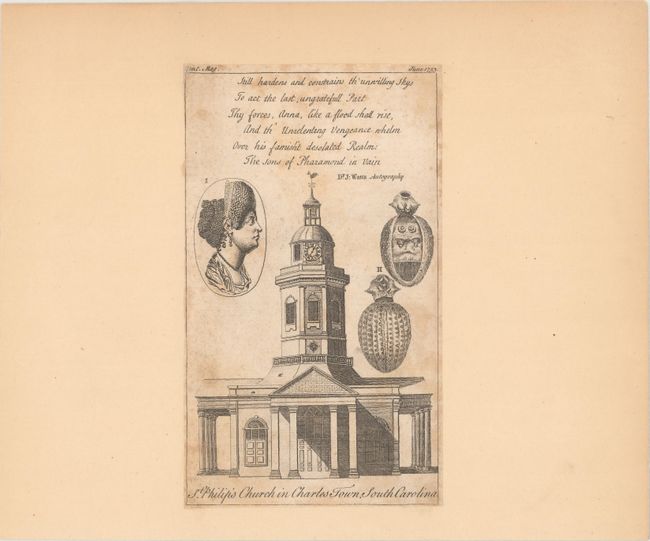 Gent. Mag. June 1753.
Still hardens and constrains th' unwilling Skys
To act the last, ungratefull Part
Thy forces, Anna, like a flood shall rise,
And th' Unrelenting Vengeance whelm
Over his famisht desolated Realm:
The sons of Pharamond in Vain
Dr. J: Watts Autography
I
II
St. Philip's Church in Charles Town, South Carolina